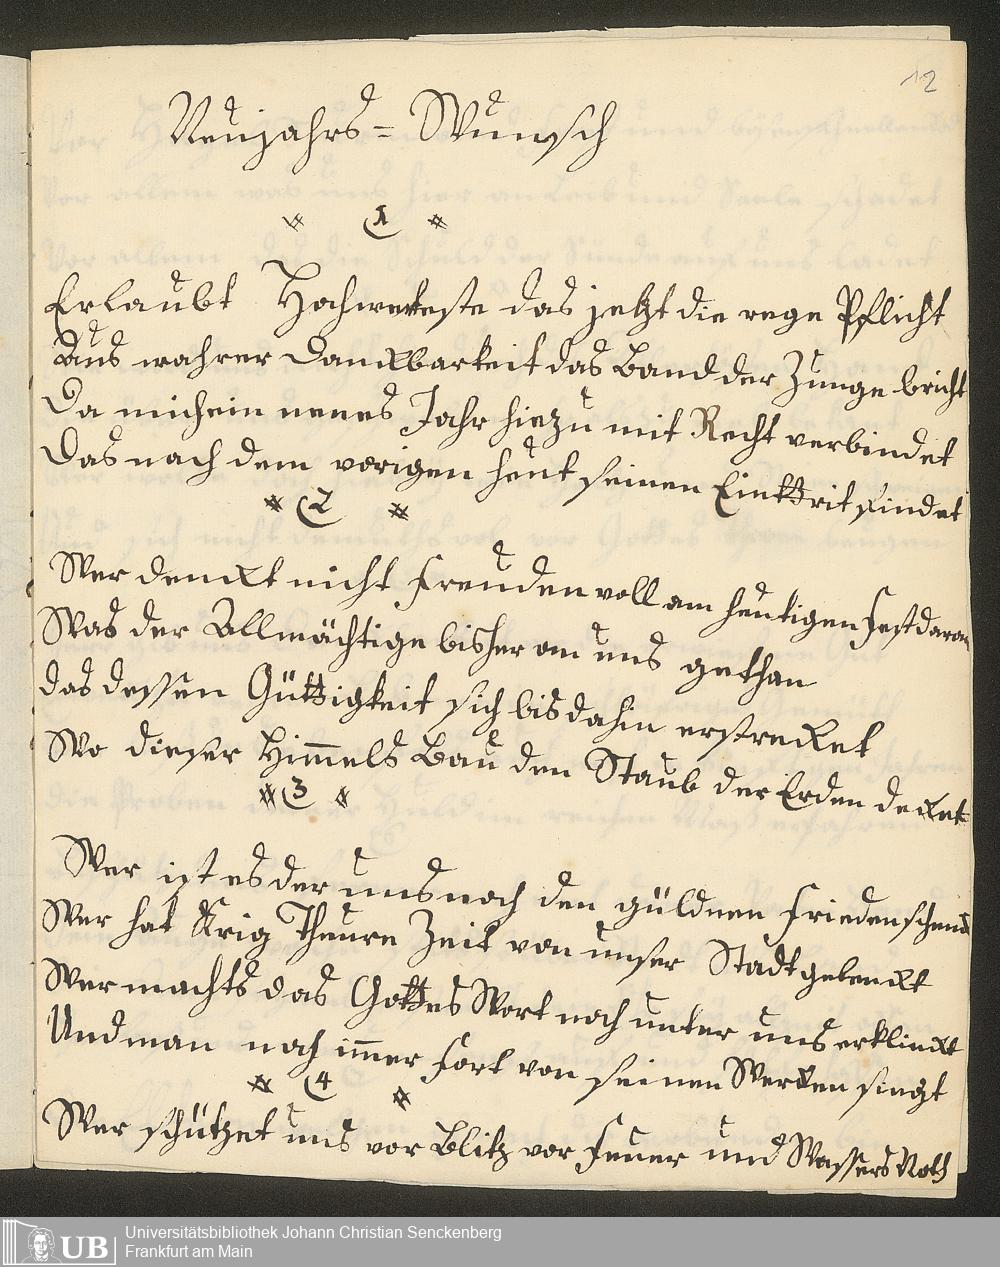 12
Neujahrs=Wunsch
# 1 #
Erlaubt Hochwerteste das jetzt die rege Pflicht
Aus wahrer Danckbarkeit das Band der Zunge bricht
Da mich ein neues Jahr hiezu mit Recht verbindet
Das nach dem vorigen heut seinen Einttrit findet
# 2 #
Wer denckt nicht freuden voll am heutigen Fest daran
Was der Allmächtige bisher an uns gethan
das dessen Güttigkeit sich bis dahin erstrecket
Wo dieser Him̅els Bau den Staub der Erden decket
# 3 #
Wer ist es der uns noch den güldnen Frieden schenckt
Wer hat Krig Theure Zeit von unser Stadt gelenckt
Wer machts das Gottes Wort noch unter uns erklinckt
Und man noch im̅er fort von seinen Wercken singt
# 4 #
Wer schützet uns vor Blitz vor Feuer und Wassers Noth
UB
Universitätsbibliothek Johann Christian Senckenberg
Frankfurt am Main